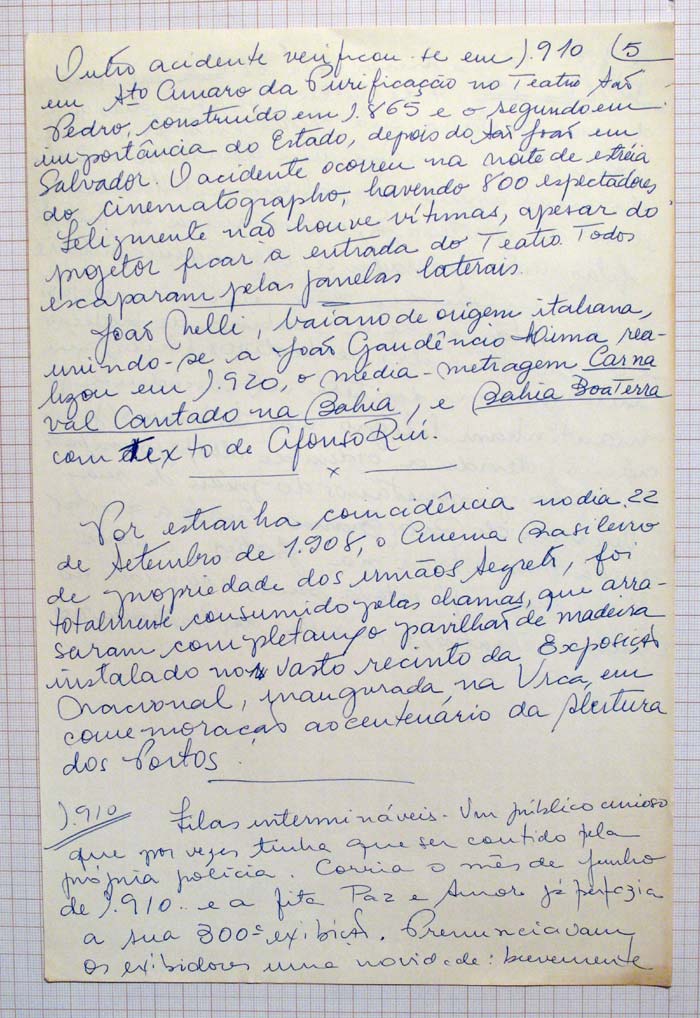 Outro acidente verificou-se em 1.910 (5
em Sto Amaro da Purificação no Teatro São
Pedro, construído em 1.865 e o segundo em
importância do Estado, depois do São João em
Salvador. O acidente ocorreu na noite de estréia
do cinematographo, havendo 800 espectadores,
Felizmente não houve vítimas, apesar do
projetor ficar à entrada do Teatro. Todos
escaparam pelas janelas laterais.
João Nelli, baiano de origem italiana,
unindo-se a João Gaudêncio Lima, rea-
lizou em 1.920, o média-metragem Carna
val Cantado na Bahia, e Bahia Boa Terra
com texto de Afonso Rui.
x
Por estranha coincidência no dia 22
de Setembro de 1.908, o Cinema Brasileiro
de propriedade dos irmãos Segreti, foi
totalmente consumido pelas chamas, que arra-
saram completamº o pavilhão de madeira
instalado no vasto recinto da Exposição
Nacional, inaugurada, na Urca, em
comemoração ao centenário da Abertura
dos Portos.
1.910 Filas intermináveis. Um público curioso
que por vezes tinha que ser contido pela
própria polícia. Corria o mês de junho
de 1.910 e a fita Paz e Amor já perfazia
a sua 300ª exibição. Prenunciavam
os exibidores uma novidade: brevemente